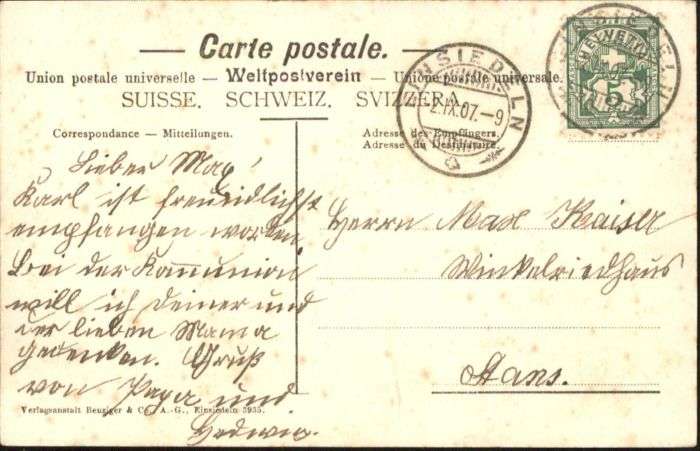 Carte postale.
Union postale universelle — Weltpostverein — Unione postale universale.
SUISSE. SCHWEIZ. SVIZZERA.
EINSIEDELN
2.IX.07.-9
HELVETIA
5
Correspondance — Mitteilungen.
Adresse des Empfängers.
Adresse du Destinataire.
Lieber Max!
Karl ist freundlichst
empfangen worden.
Bei der Kommunion
will ich Deiner und
der lieben Mama
gedenken. Gruß
von Papa und
Hedwig.
Herrn Max Kaiser
Winkelriedhaus
Stans.
Verlagsanstalt Benziger & Co. A.-G., Einsiedeln 3955.